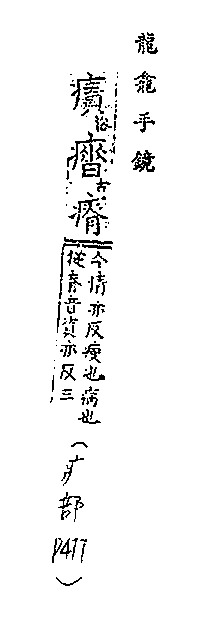 龍龕手鏡
俗 𤺺 古 瘠
今情亦反瘦也病也
從脊音資亦反三
（疒部
P477）